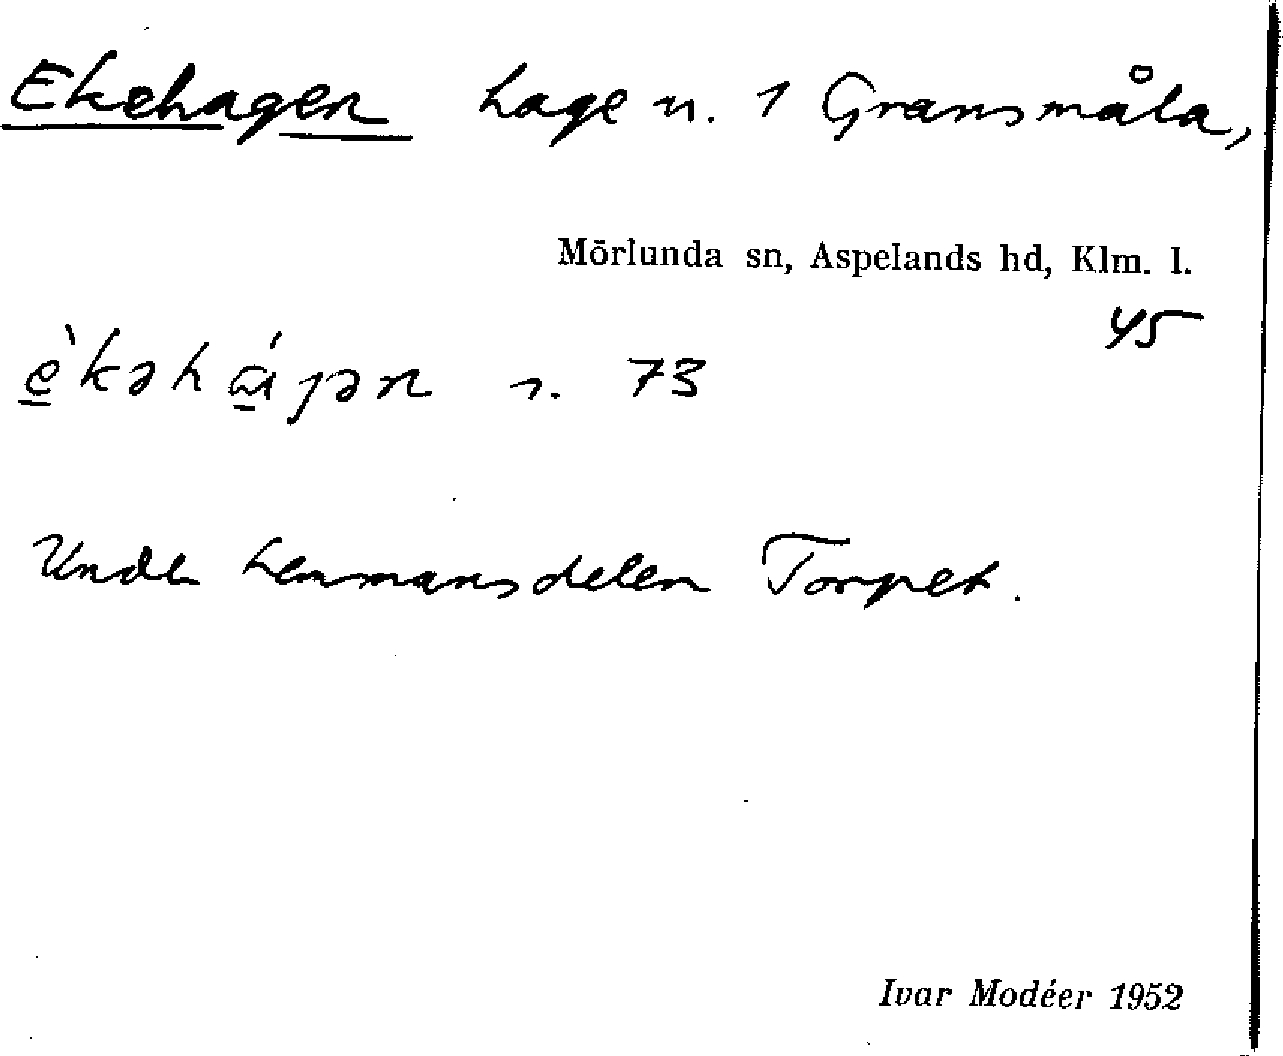 Ekehagen hage n. 1 Gransmåla,
Mörlunda sn, Aspelands hd, Klm. l.
45
s. 73
Under hemmansdelen Torpet.
Ivar Modéer 1952